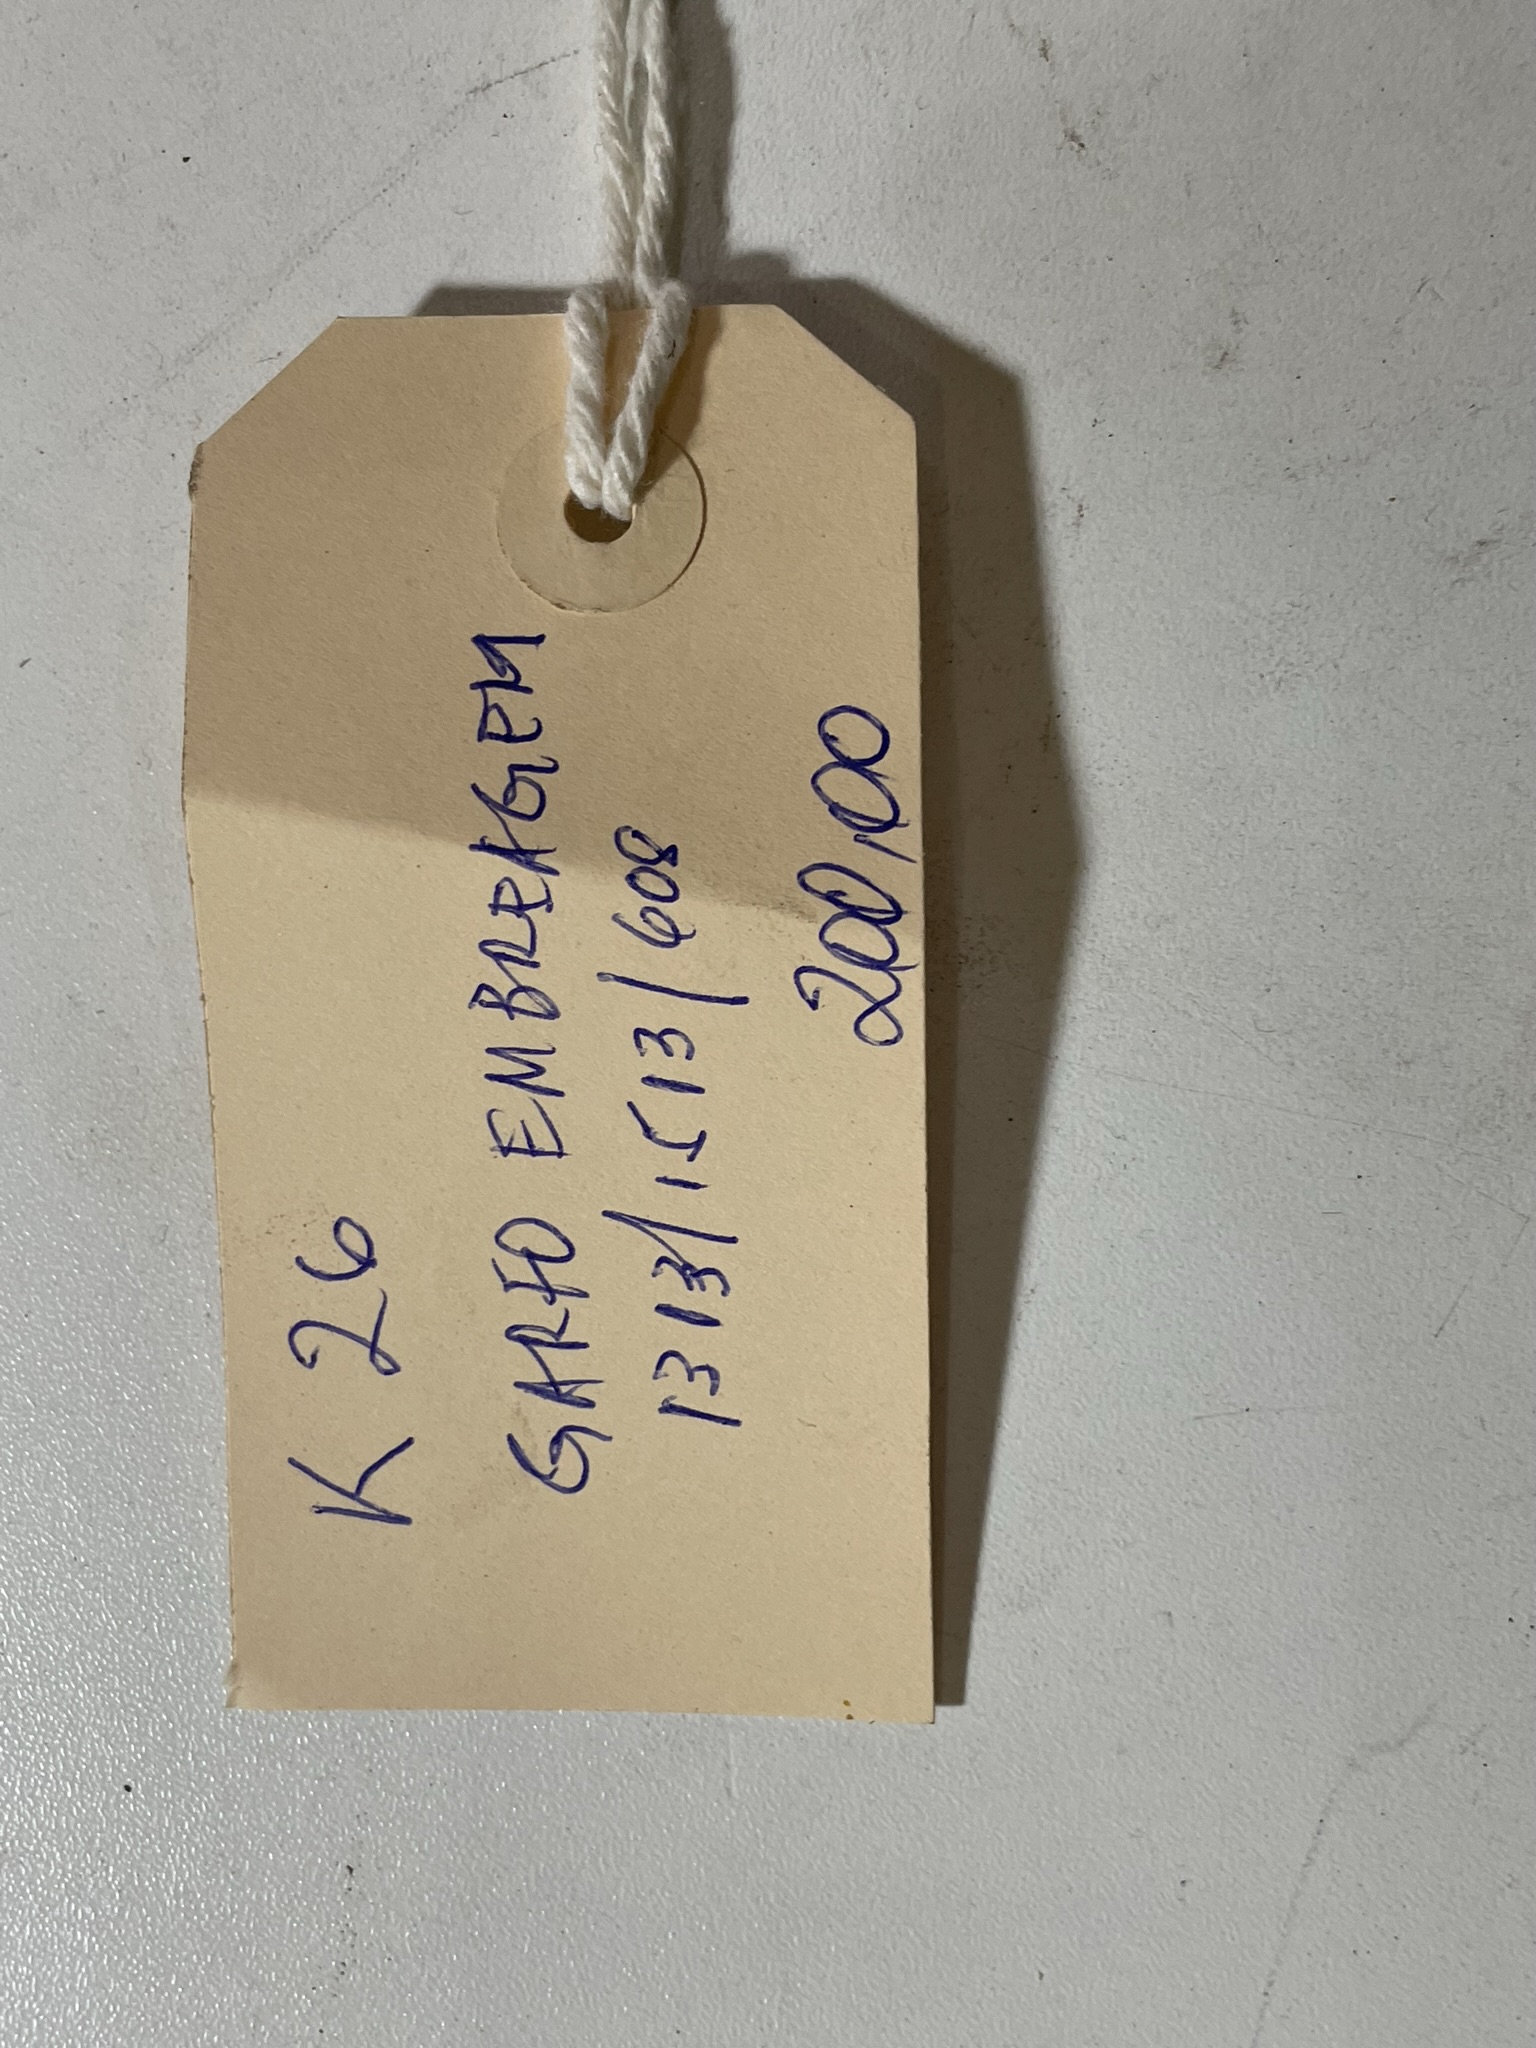 K 26
GARFO EMBREAGEM
1313/1513/608
200,00